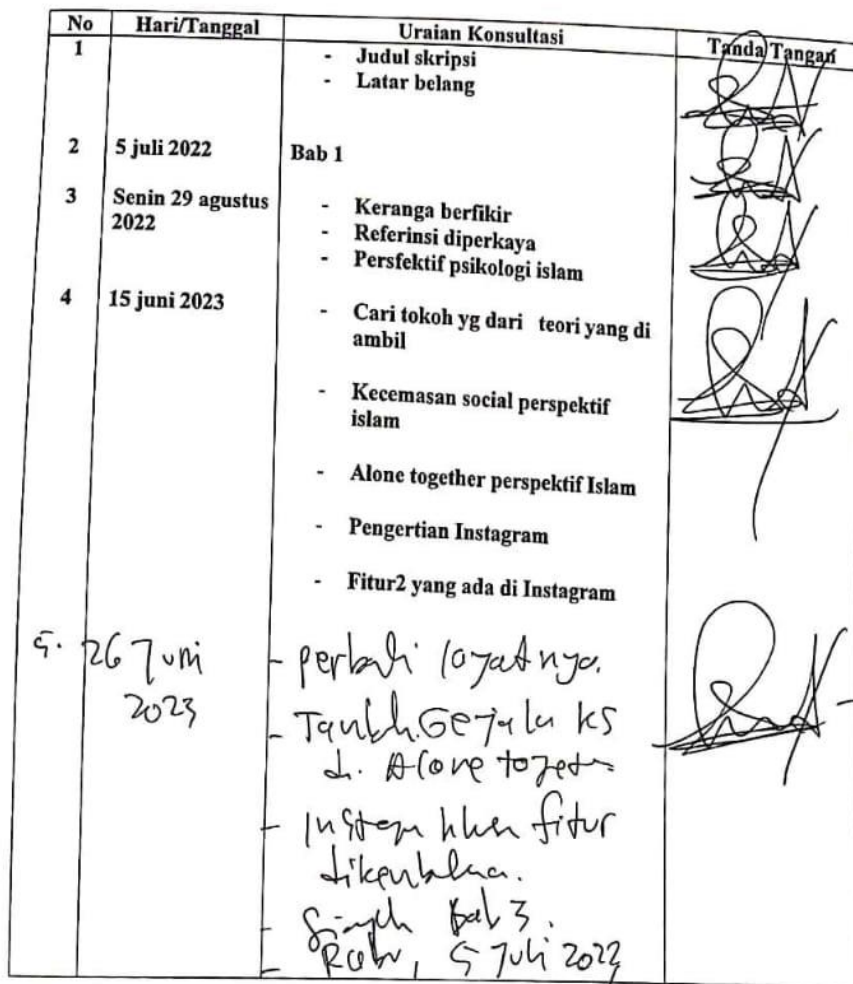 No Hari/Tanggal Uraian Konsultasi Tanda Tangan
1 - Judul skripsi
- Latar belang
2 5 juli 2022 Bab 1
3 Senin 29 agustus - Keranga berfikir
2022 - Referinsi diperkaya
- Persfektif psikologi islam
4 15 juni 2023 - Cari tokoh yg dari teori yang di
ambil
- Kecemasan social perspektif
islam
- Alone together perspektif Islam
- Pengertian Instagram
- Fitur2 yang ada di Instagram
5. 26 Juni - perbaiki
2023 - Gejala KS
Alone together
- fitur
- Bab 3.
- Rabu, 5 Juli 2023